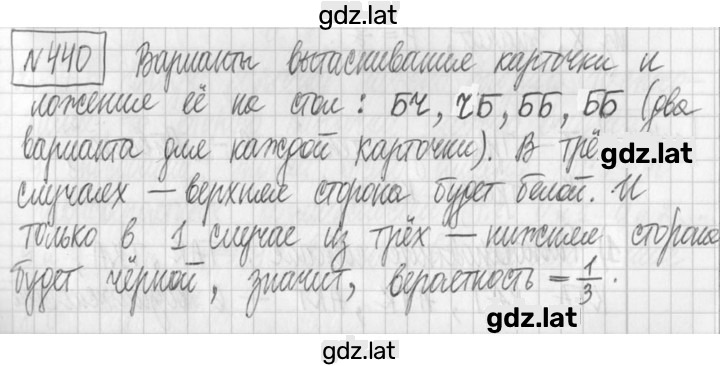 gdz.lat
№440 Варианты вытаскивание карточки и
ложение её на стол: БЧ, ЧБ, ББ, ББ (два
варианта для каждой карточки). В трё
gdz.lat
случаях — верхняя сторона будет белой. И
только в 1 случае из трёх — нижняя сторона
будет чёрной, значит, вероятность = 1/3.
gdz.lat
gdz.lat